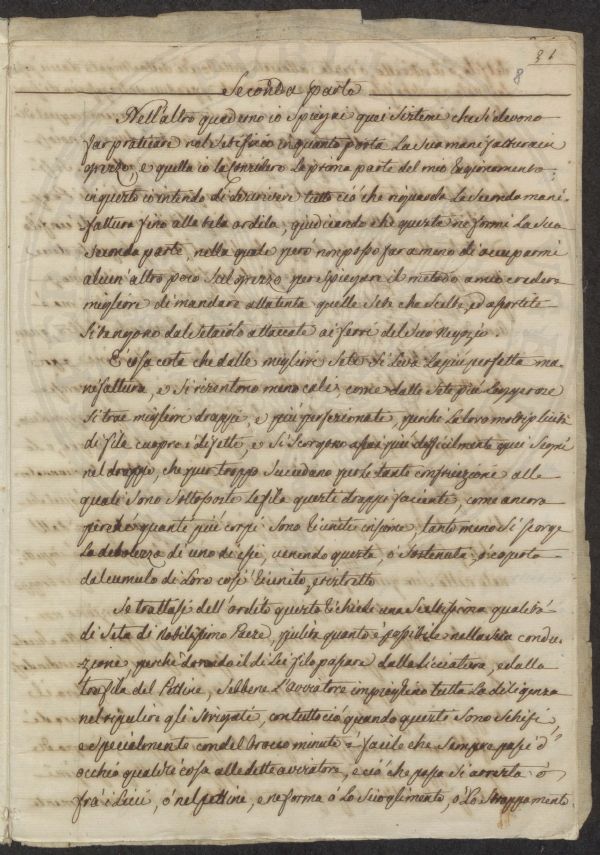 31
8
Seconda parte
Nell'altro quaderno io spiegai quei sistemi che si devono
far praticare nel setificio in quanto porta la sua manifattura in
grezzo, e quella io la considero la prima parte del mio Ragionamento
in questo io intendo di descrivere tutto ciò che riguarda la seconda mani-
fattura fino alla tela ordita, giudicando che questa ne formi la sua
seconda parte, nella quale però non posso far a meno di occuparmi
alcun altro poco sul grezzo per spiegare il metodo a mio credere
migliore di mandare alla tenta quelle sete che scelte, ed assortite
si tengono dal setaiolo attaccate ai ferri del suo Negozio.
È cosa certa che dalle migliori sete si leva la più perfetta ma-
nifattura, e si risentono meno cali, come dalle sete più leggere
si trae migliori drappi, e più perfezionati, perché la loro moltiplicità
di fila cuopre i difetti, e si scorgono assai più difficilmente quei segni
nel drappo, che pur troppo succedano per le tante confricazione alle
quali sono sottoposte le fila queste drappo faciente, come ancora
perché quanti più corpi sono riuniti insieme, tanto meno si scorge
la debolezza di uno di essi, venendo questa, ò sostenuta, ò coperta
dal cumulo di loro così riunito, e ristretto
Se trattasi dell'ordito questo richiede una scieltissima qualità
di seta di nobilissimo Paese, pulita quanto è possibile nella sua condu-
zione, perché dovendo il di lei filo passare dalla licciatura, e dalla
trafila del Pettine, sebbene l'avviatore impieghino tutta la diligenza
nel ripulire gli strigati, con tutto ciò quando questi sono schifi,
e specialmente con del brocco minuto è facile che sempre passi d'
occhio qualche cosa alle dette avviatore, e ciò che passa si arresta ò
frà i licci, ò nel pettine, e ne forma ò lo scioglimento, ò lo strappamento